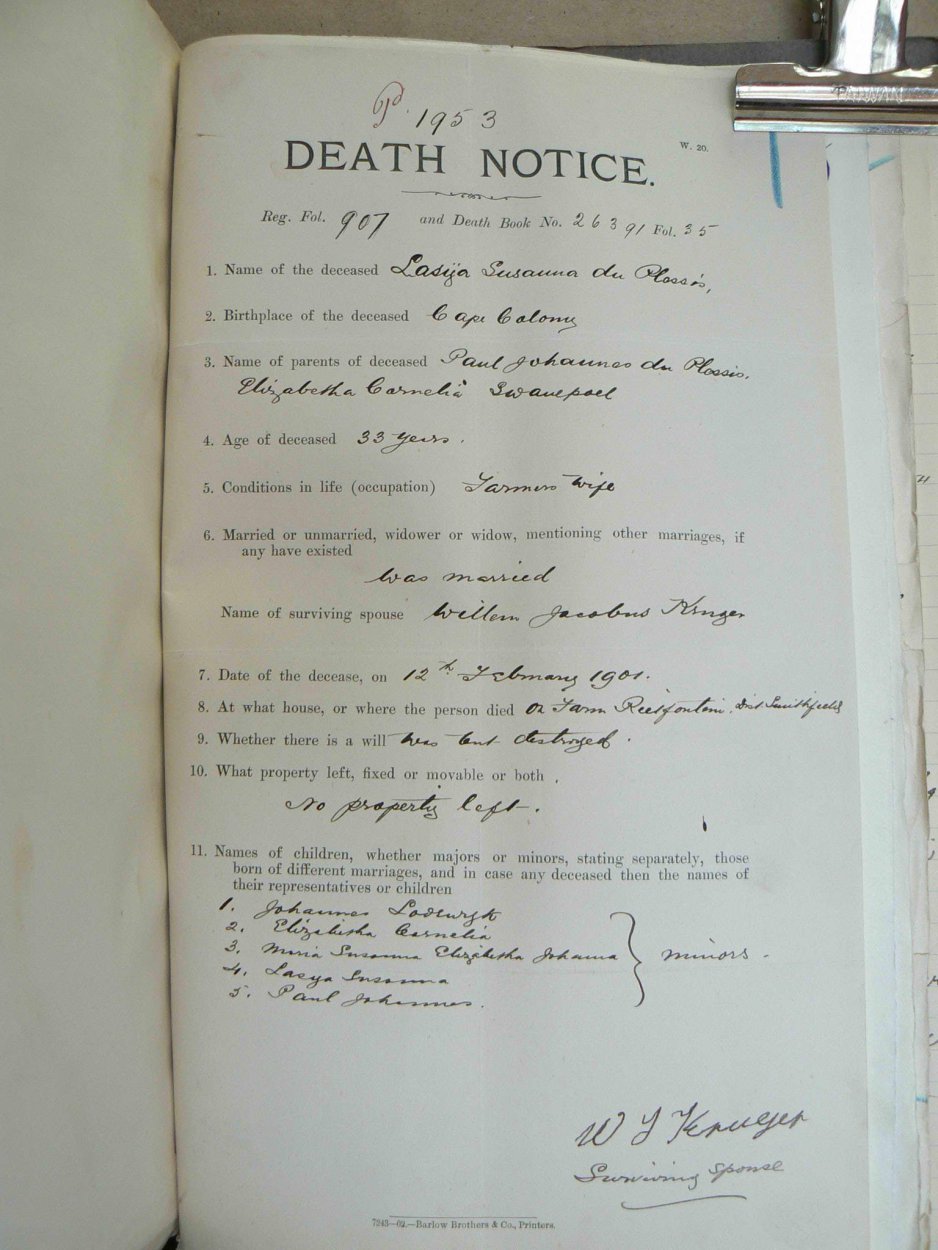 Pd. 1953
W. 20.
DEATH NOTICE.
Reg. Fol. 907 and Death Book No. 26391 Fol. 35
1. Name of the deceased Lasija Susanna du Plessis,
2. Birthplace of the deceased Cape Colony
3. Name of parents of deceased Paul Johannes du Plessis.
Elizabetha Cornelia Swanepoel
4. Age of deceased 33 years.
5. Conditions in life (occupation) Farmers Wife
6. Married or unmarried, widower or widow, mentioning other marriages, if
any have existed
Was married
Name of surviving spouse Willem Jacobus Kruger
7. Date of the decease, on 12th February 1901.
8. At what house, or where the person died On Farm Rietfontein. Dist Smithfield
9. Whether there is a will Was but destroyed.
10. What property left, fixed or movable or both.
No property left.
11. Names of children, whether majors or minors, stating separately, those
born of different marriages, and in case any deceased then the names of
their representatives or children
1. Johannes Lodewyk
2. Elizabetha Cornelia
3. Maria Susanna Elizabetha Johanna
minors.
4. Lasya Susanna
5. Paul Johannes.
W J Krueger
Surviving Spouse
7243—02.—Barlow Brothers & Co., Printers.
TAIWAN